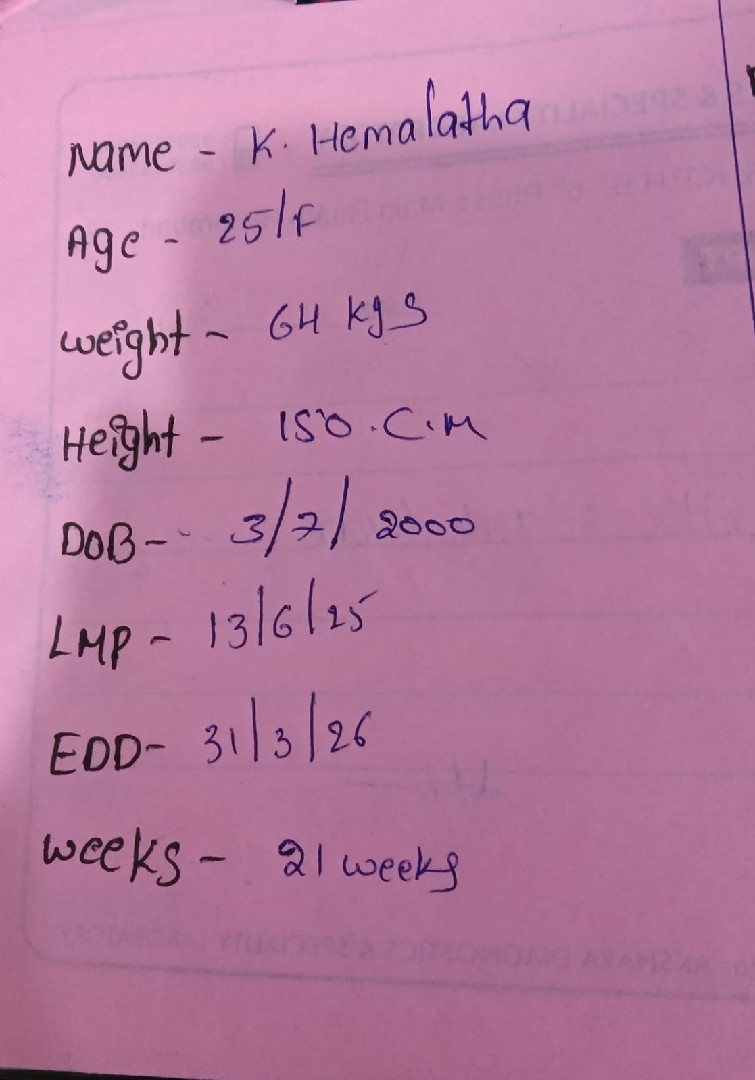 Name - K. Hemalatha
Age - 25/F
weight - 64 kgs
Height - 150.C.M
DOB - 3/7/2000
LMP - 13/6/25
EDD - 31/3/26
weeks - 21 weeks